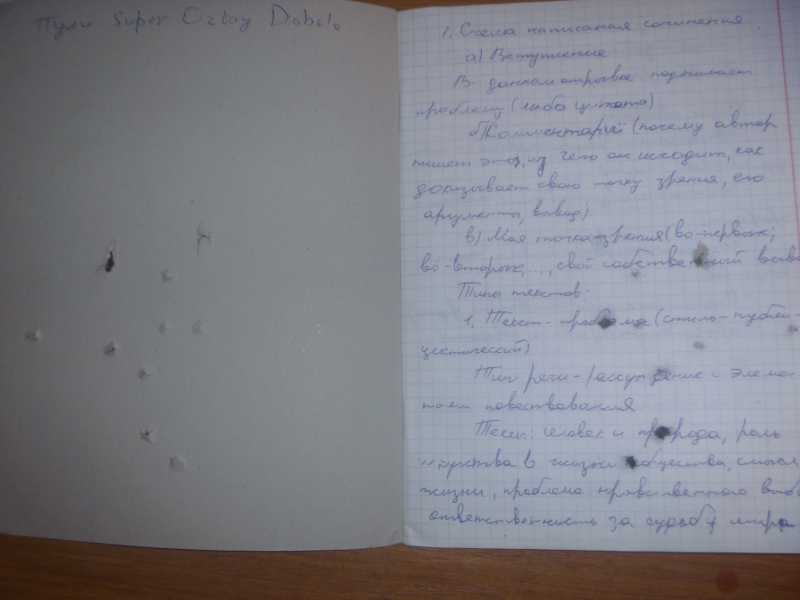 Пули Super Oztay Dabolo
1. Схема написания сочинения.
а) Вступление
В данном отрывке поднимает
проблему (либо цитата)
б) Комментарий (почему автор
пишет это, из чего он исходит, как
доказывает свою точку зрения, его
аргументы, вывод)
в) Моя точка зрения (во-первых;
во-вторых, ..., свой собственный вывод
Типы текстов:
1. Текст-проблема (стиль-публи-
цистический)
Тип речи-рассуждение с элемен-
тами повествования
Тесты: человек и природа, роль
искусства в жизни общества, смысл
жизни, проблема нравственного выбо
ответственность за судьбу мира